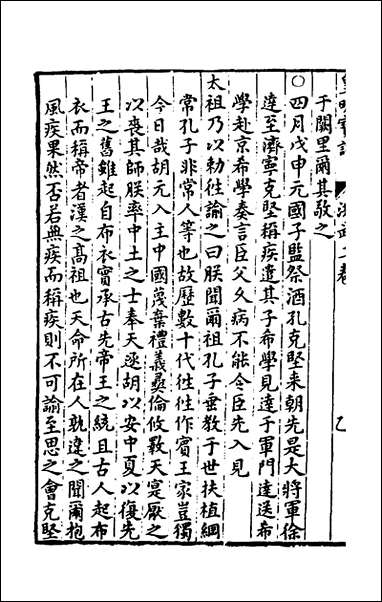 皇明寶訓
洪武二卷
于闕里爾其敬之
○四月戊申元國子監祭酒孔克堅來朝先是大將軍徐
達至濟寧克堅稱疾遣其子希學見達于軍門達送希
學赴京希學奏言臣父久病不能令臣先入見
太祖乃以勅往諭之曰朕聞爾祖孔子垂教于世扶植綱
常孔子非常人等也故歷數十代徃徃作賓王家豈獨
今日哉胡元入主中國蔑棄禮義彝倫攸斁天寔厭之
以喪其師朕率中土之士奉天逐胡以安中夏以復先
王之舊雖起自布衣實承古先帝王之統且古人起布
衣而稱帝者漢之高祖也天命所在人孰違之聞爾抱
風疾果然否若無疾而稱疾則不可諭至思之會克堅